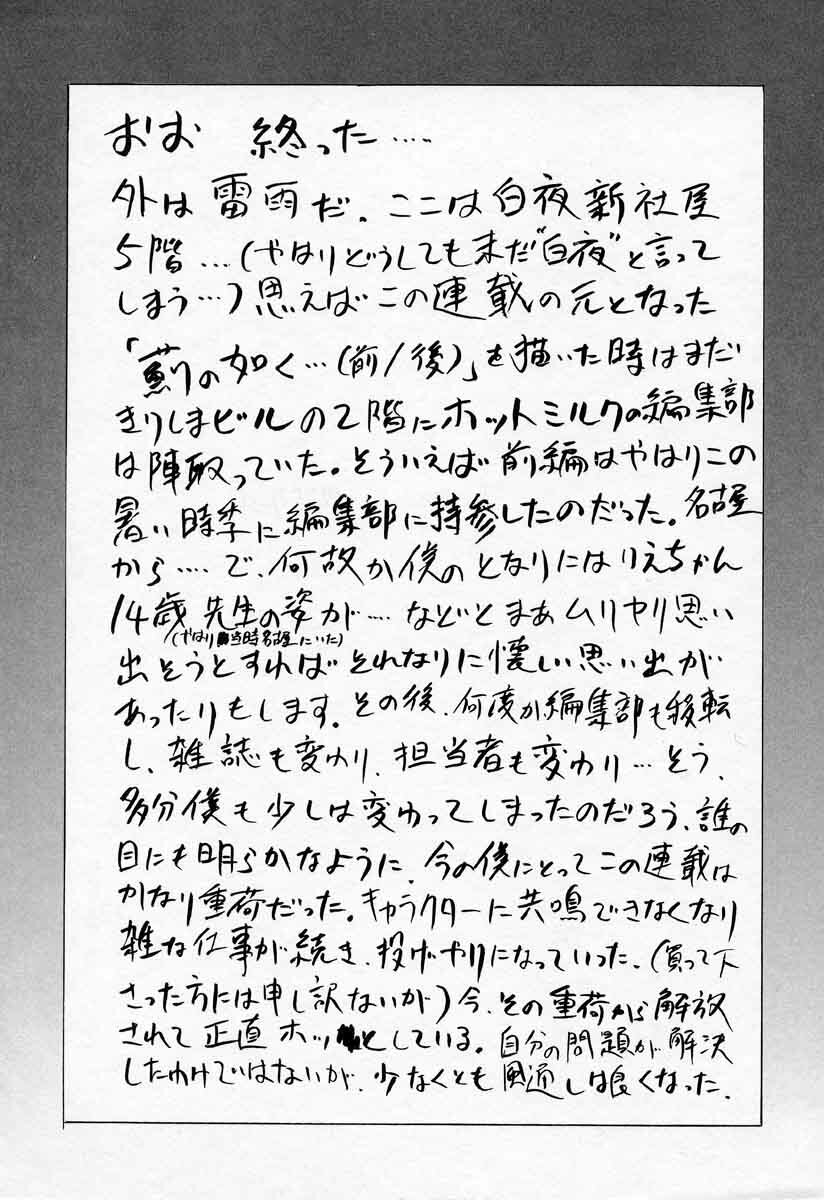 おお 終った‥‥
外は雷雨だ. ここは白夜新社屋
5階…(やはりどうしてもまだ"白夜"と言って
しまう…)思えばこの連載の元となった
「薊の如く…(前/後)」を描いた時はまだ
きりしまビルの2階にホットミルクの編集部
は陣取っていた。そういえば前編はやはりこの
暑い時季に編集部に持参したのだった。名古屋
から‥‥で、何故か僕のとなりにはりえちゃん
14歳先生の姿が…などとまあムリヤリ思い
(やはり当時名古屋にいた)
出そうとすればそれなりに懐しい思い出が
あったりもします。その後、何度か編集部も移転
し、雑誌も変わり、担当者も変わり…そう、
多分僕も少しは変わってしまったのだろう、誰の
目にも明らかなように、今の僕にとってこの連載は
かなり重荷だった。キャラクターに共鳴できなくなり
雑な仕事が続き、投げやりになっていった、(買って下
さった方には申し訳ないが)今、その重荷から解放
されて正直ホッとしている。自分の問題が解決
したわけではないが、少なくとも風通しは良くなった.